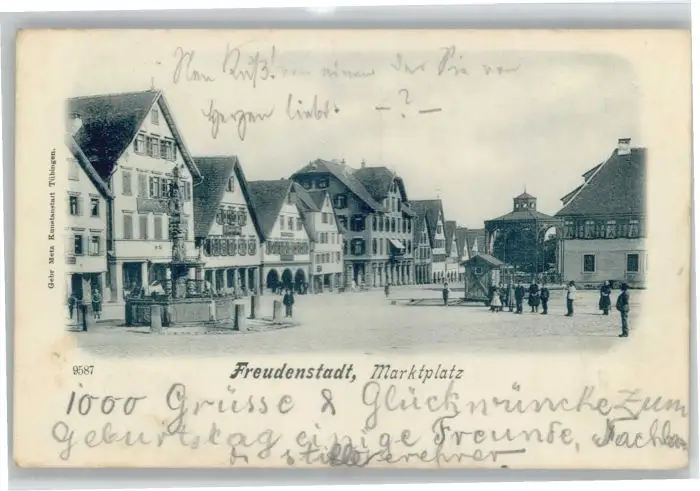 Nen Kuß! von einem der Sie von
Herzen liebt. – ? –
Gebr Metz Kunstanstalt Tübingen.
9587
Freudenstadt, Marktplatz
1000 Grüsse & Glückwünsche zum
Geburtstag einige Freunde,
stille verehrer